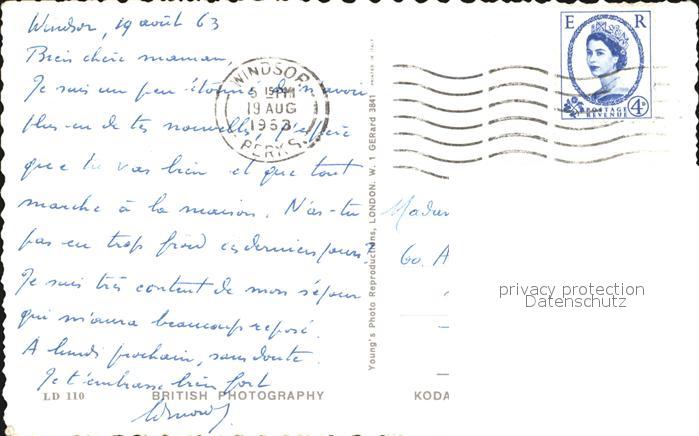 Windsor, 19 août 63
Bien chère maman,
Je suis un peu étonné de n'avoir
plus eu de tes nouvelles, j'espère
que tu vas bien et que tout
marche à la maison. N'as-tu
pas eu trop froid ces derniers jours?
Je suis très content de mon séjour
qui m'aura beaucoup reposé.
À lundi prochain, sans doute.
Je t'embrasse bien fort
LD 110
BRITISH PHOTOGRAPHY
KODA
Young's Photo Reproductions, LONDON. W. 1 GERrard 3841
PRINTED IN ITALY
WINDSOR
5 15 PM
19 AUG
1963
BERKS.
E R
POSTAGE
REVENUE
4D
Madam
60. A
privacy protection
Datenschutz